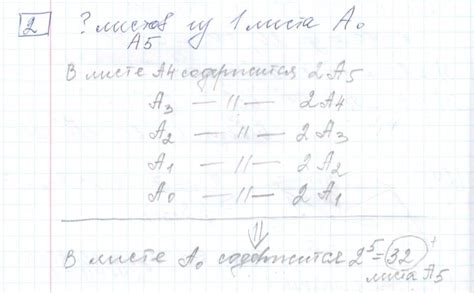 2 ? листов из 1 листа A0
A5
В листе A4 содержится 2 A5
A3 — 11 — 2 A4
A2 — 11 — 2 A3
A1 — 11 — 2 A2
A0 — 11 — 2 A1
⇓
В листе A0 содержится 2^5 = 32
листа A5